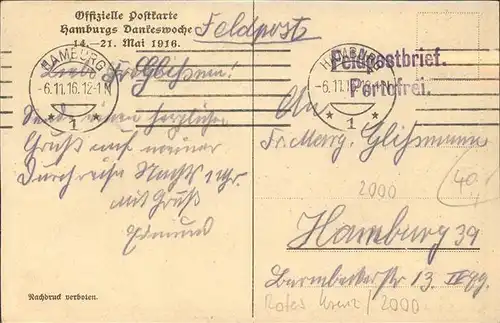 Offizielle Postkarte
Hamburgs Dankeswoche
14.–21. Mai 1916.
Feldpost
HAMBURG
-6.11.16.12-1N
* 1 *
Liebe Fr. Glißmann!
Sende Ihnen herzlichen
Gruß auf meiner
Durchreise Nachts 1 Uhr.
mit Gruß
Edmund
Nachdruck verboten.
HAMBURG
-6.11.16.12-1N
* 1 *
Feldpostbrief.
Portofrei.
An
Fr. Marg. Glißmann
2000
40,-
Hamburg 39
Barmbeckerstr 13. IV
Rotes Kreuz / 2000